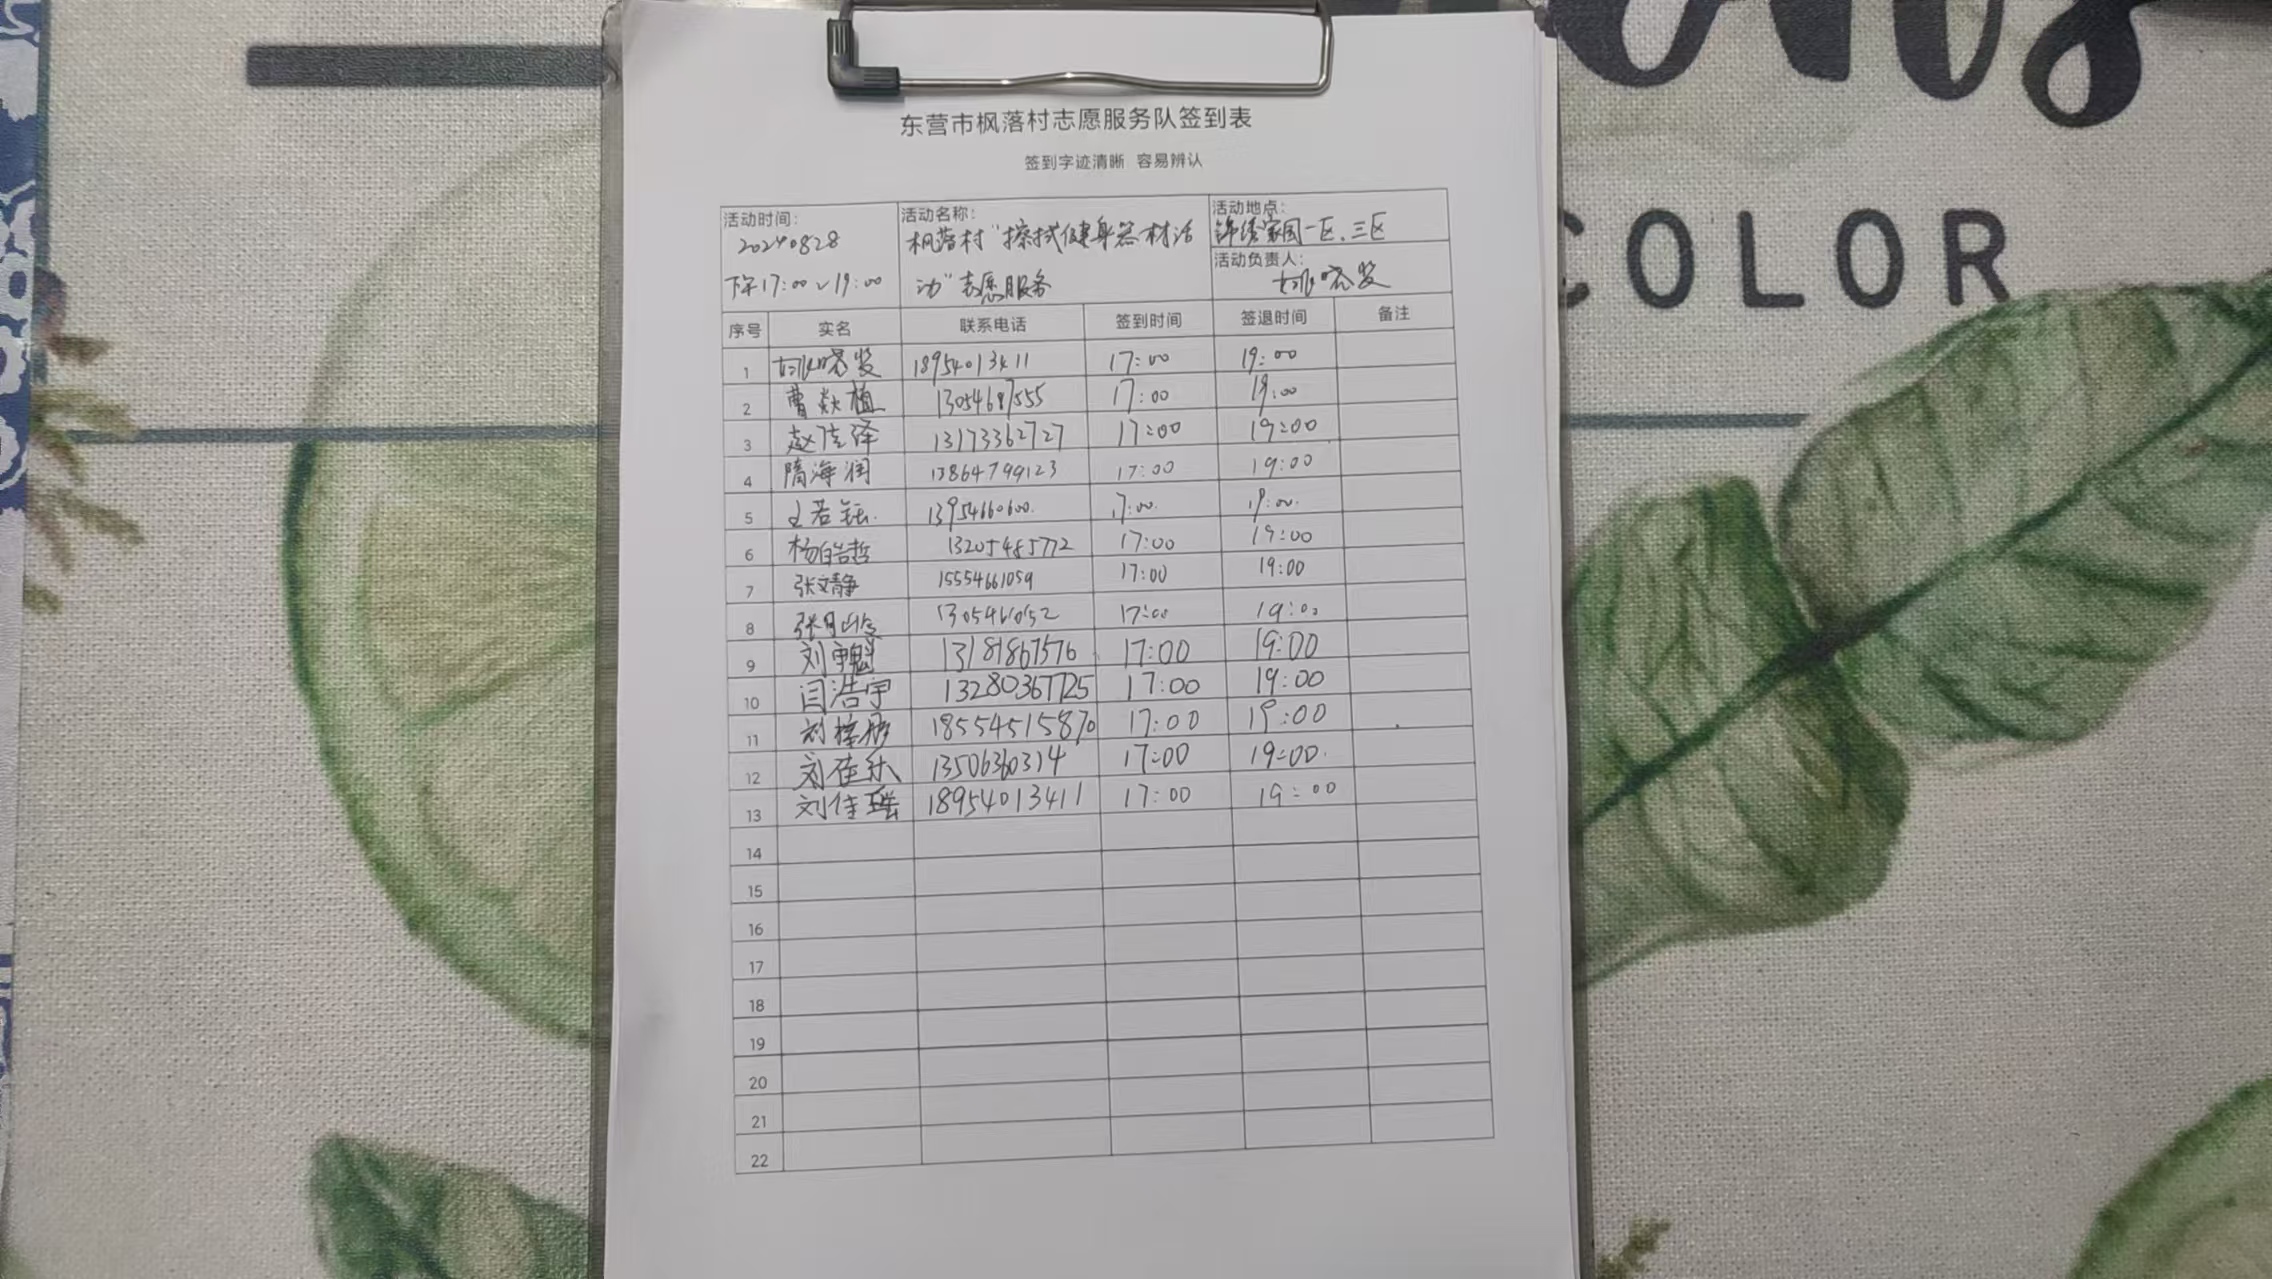 COLOR
东营市枫落村志愿服务队签到表
签到字迹清晰 容易辨认
活动时间： 活动名称： 活动地点：
20240828 枫落村"擦拭健身器材活 锦绣家园一区、三区
活动负责人：
下午17:00~19:00 动"志愿服务
序号 实名 联系电话 签到时间 签退时间 备注
1 18954013411 17:00 19:00
2 曹 植 13054687555 17:00 19:00
3 赵佳泽 13173362727 17:00 19:00
4 隋海润 13864799123 17:00 19:00
5 王若钰 13954660600 17:00 19:00
6 杨皓哲 13205485772 17:00 19:00
7 张文静 15554661059 17:00 19:00
8 张 17:00 19:00
9 刘 13181867576 17:00 19:00
10 闫浩宇 13280367725 17:00 19:00
11 刘梓彤 18554515870 17:00 19:00
12 刘佳乐 13506360314 17:00 19:00
13 刘佳瑶 18954013411 17:00 19:00
14
15
16
17
18
19
20
21
22